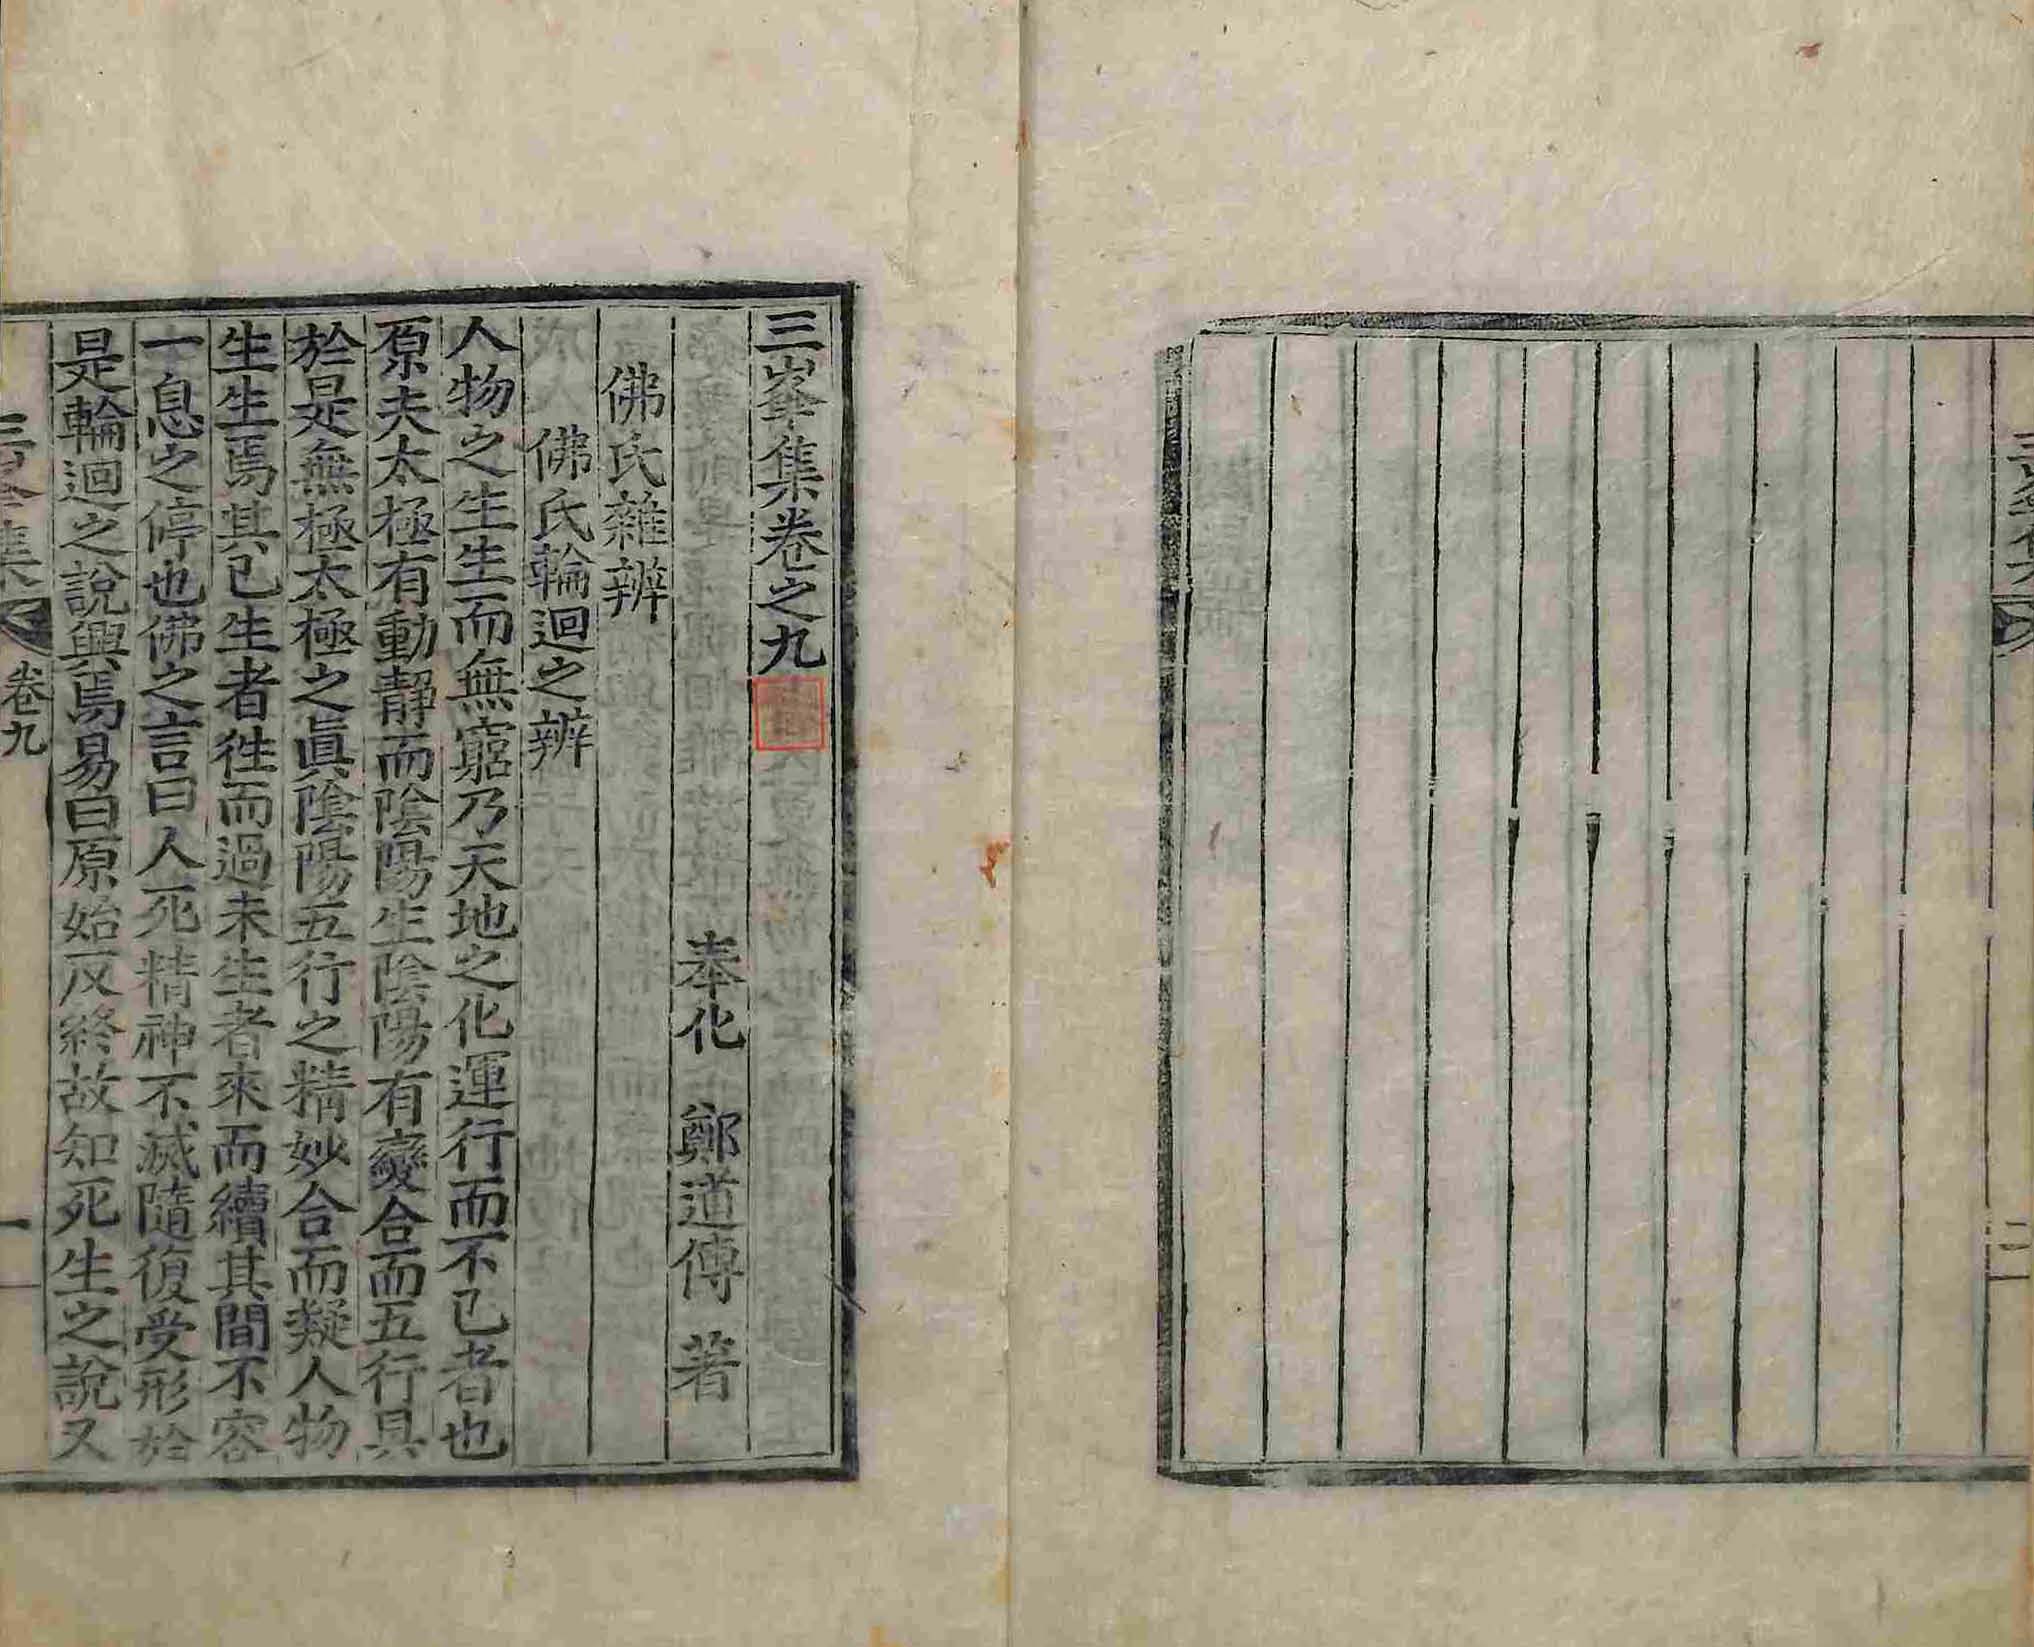 三峯集卷之九
奉化 鄭道傳 著
佛氏雜辨
佛氏輪迴之辨
人物之生生而無窮乃天地之化運行而不已者也
原夫太極有動靜而陰陽生陰陽有變合而五行具
於是無極太極之眞陰陽五行之精妙合而凝人物
生生焉其已生者徃而過未生者來而續其間不容
一息之停也佛之言曰人死精神不滅隨復受形於
是輪迴之說興焉易曰原始反終故知死生之說又
三峯集
卷九
一